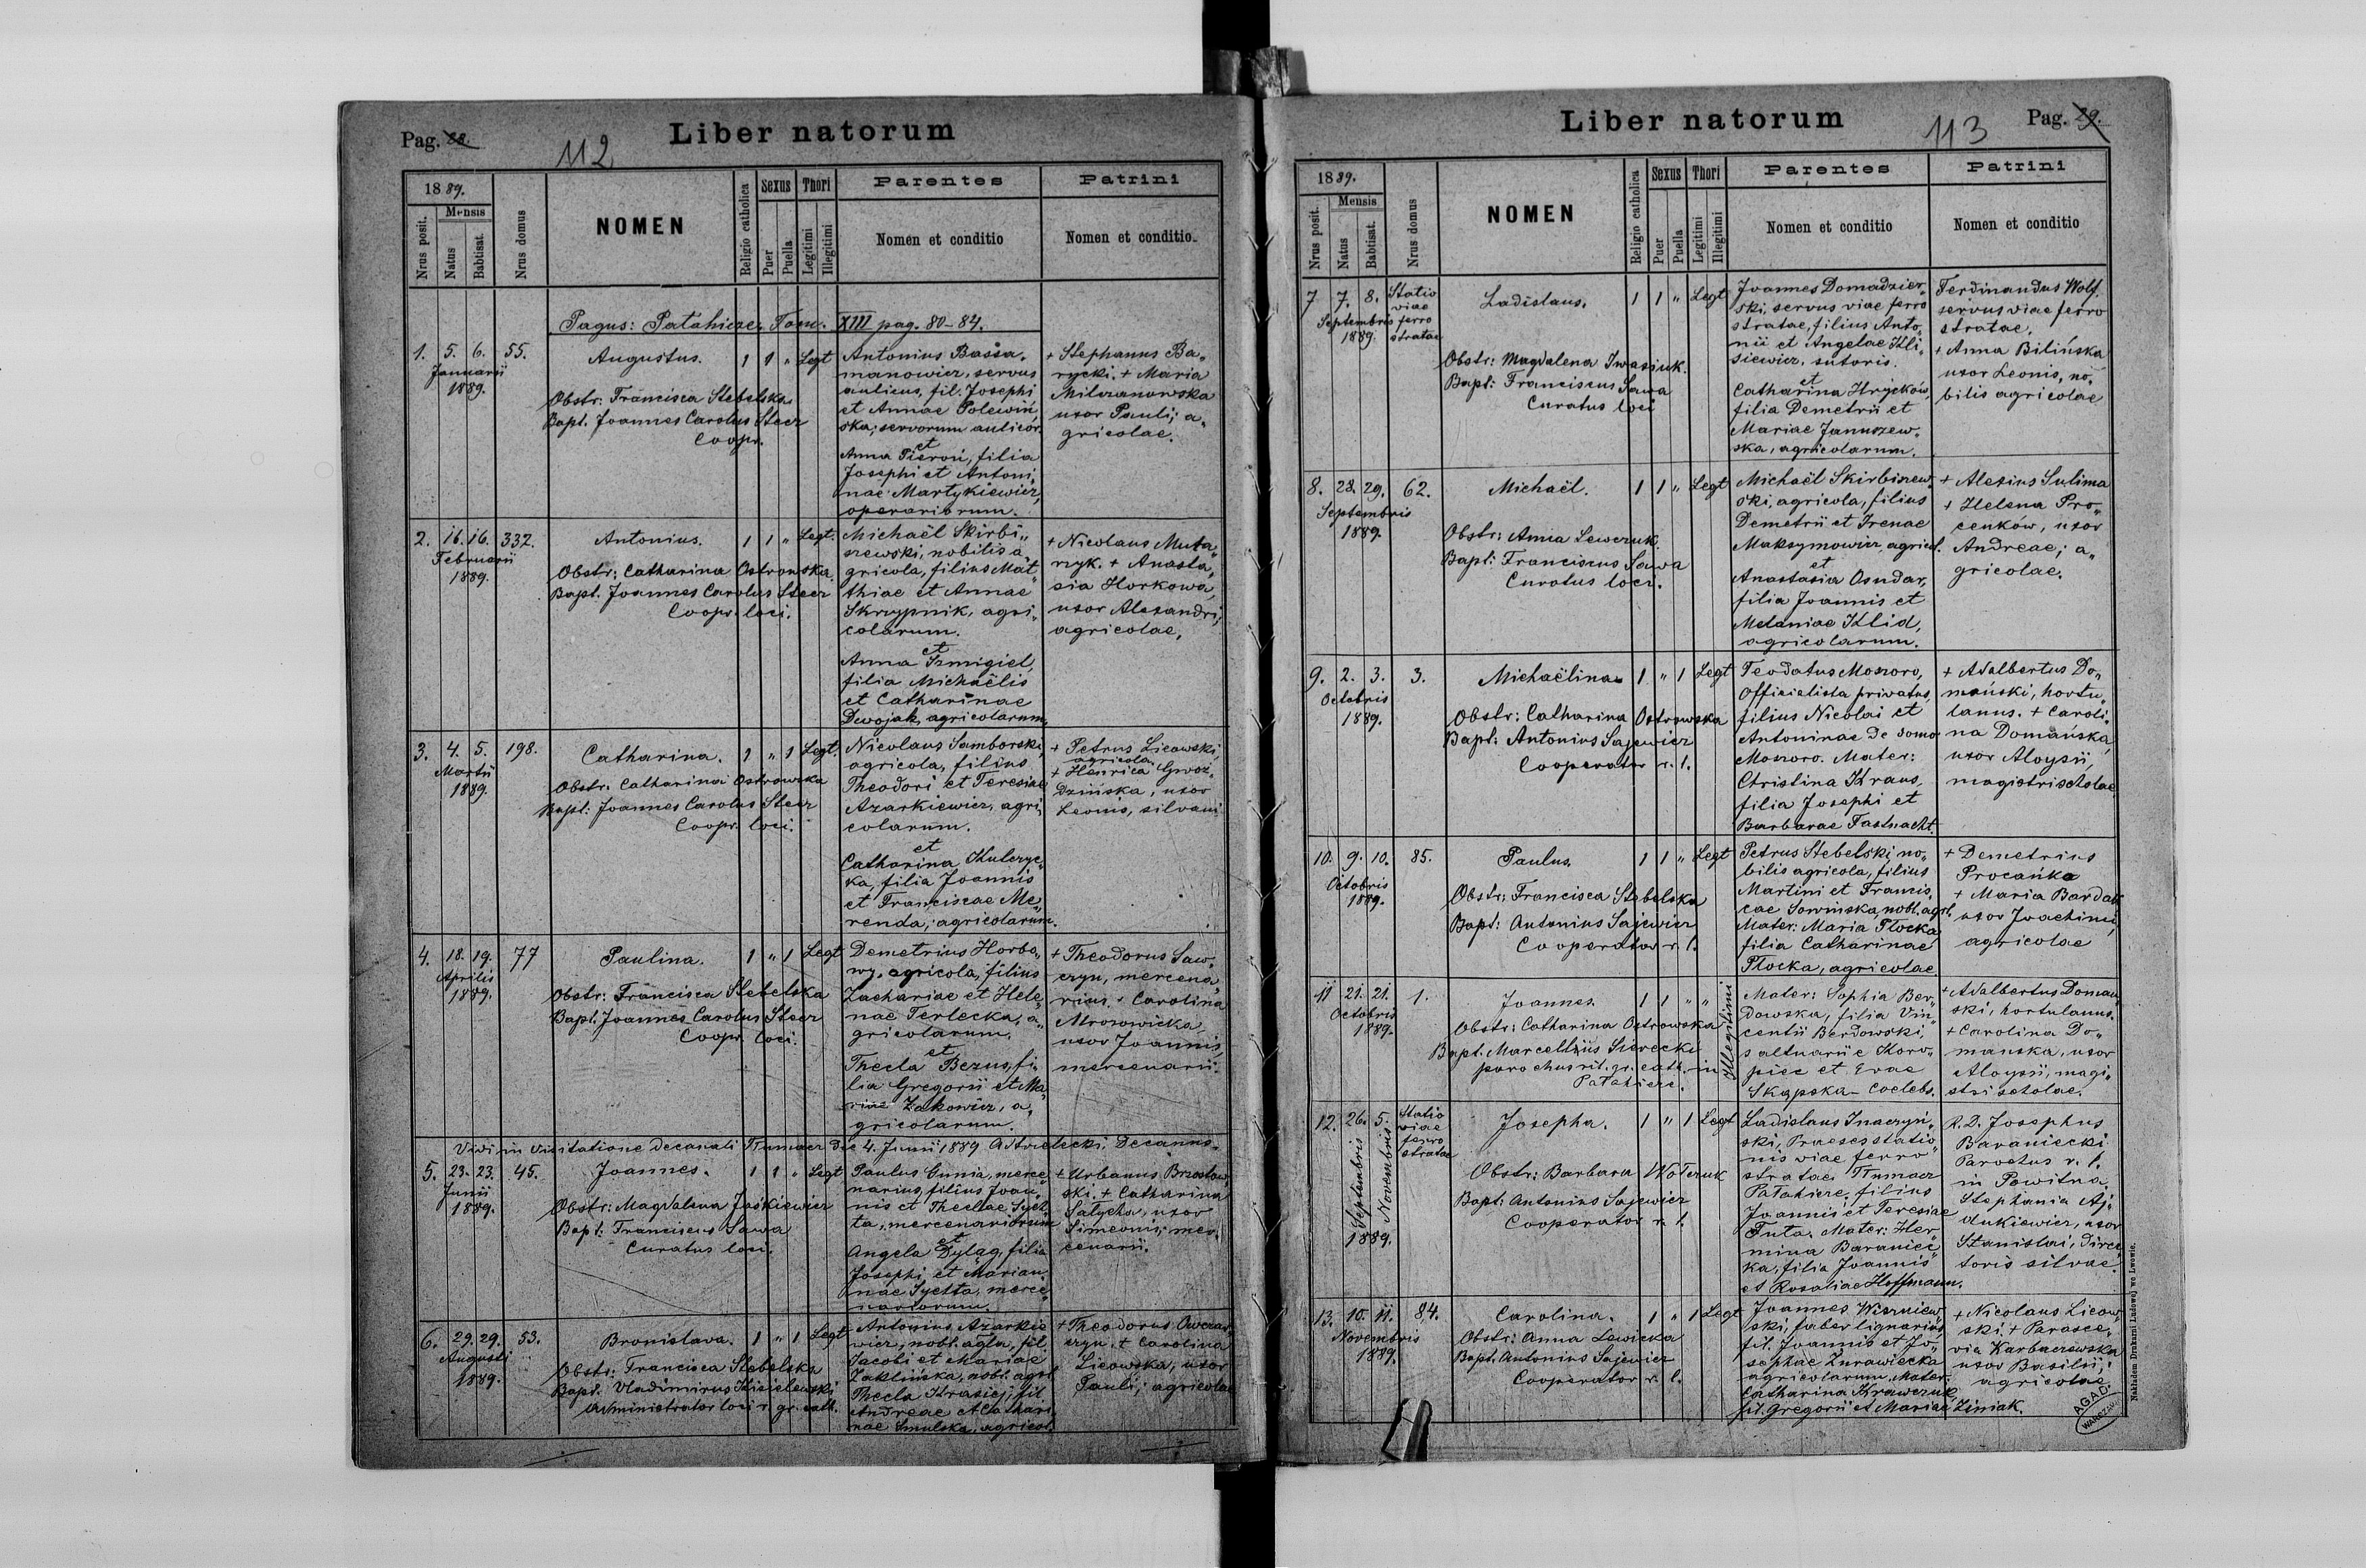 Pag. 28.
112
Liber natorum
1889.
Nrus posit.
Mensis
Natus
Babtisat.
Nrus domus
NOMEN
Religio catholica
Sexus
Puer
Puella
Thori
Legitimi
Illegitimi
Parentes
Nomen et conditio
Patrini
Nomen et conditio
Pagus: Patahicze. Tom. XIII pag. 80-84.
1. 5. 6. 55.
Januarii
1889.
Augustus. 1 1 " Legt
Obstr: Francisca Stebelska
Bapt. Joannes Carolus Steer
Coopr.
Antonius Bassa„
manowicz, servus
aulicus, fil. Josephi
et Annae Polewiń„
ska; servorum aulicor.
et
Anna Pieroń, filia
Josephi et Antoni„
nae Martykiewicz,
operariorum.
+ Stephanus Ba„
rycki. + Maria
Milczanowska
uxor Pauli; a„
gricolae.
2. 16. 16. 332.
Februarii
1889.
Antonius. 1 1 " Legt.
Obstr: Catharina Ostrowska.
Bapt. Joannes Carolus Steer
Coopr. loci.
Michaël Skirbi„
szewski, nobilis a„
gricola, filius Mat„
thiae et Annae
Skrzypnik, agri„
colarum.
et
Anna Szmigiel,
filia Michaëlis
et Catharinae
Dwojak, agricolarum.
+ Nicolaus Muta„
rzyk. + Anasta„
sia Horkowa,
uxor Alexandri;
agricolae,
3. 4. 5. 198.
Martii
1889.
Catharina. 1 " 1 Legt.
Obstr. Catharina Ostrowska
Bapt: Joannes Carolus Steer
Coopr. loci.
Nicolaus Samborski,
agricola, filius
Theodori et Teresiae
Azarkiewicz, agri„
colarum.
et
Catharina Kulczyc„
ka, filia Joannis
et Franciscae Me„
renda; agricolarum.
+ Petrus Licowski,
agricola.
+ Henrica Gwoź„
dzińska, uxor
Leonis, silvani
4. 18. 19. 77
Aprilis
1889.
Paulina. 1 " 1 Legt
Obstr: Francisca Stebelska
Bapt. Joannes Carolus Steer
Coopr. loci.
Demetrius Horba„
wy, agricola, filius
Zachariae et Hele„
nae Terlecka, a„
gricolarum.
et
Thecla Bezus, fi„
lia Gregorii et Ma„
riae Zakowicz, a„
gricolarum.
+ Theodorus Saw„
czyn, mercena„
rius. + Carolina
Mrozowicka,
uxor Joannis,
mercenarii.
Vidi in visitatione decanali Tłumacz die 4. Junii 1889 Decanus
5. 23. 23. 45.
Junii
1889.
Joannes. 1 1 " Legt
Obstr: Magdalena Jaśkiewicz
Bapt: Franciscus Sawa
Curatus loci.
Paulus Gunia, merce„
narius, filius Joan„
nis et Theclae Syet„
ta, mercenariorum
et
Angela Dyląg, filia
Josephi et Marian„
nae Syetta, merce„
nariorum.
+ Urbanus Brzostow„
ski. + Catharina
Satycha, uxor
Simeonis; mer„
cenarii.
6. 29. 29. 53.
Augusti
1889.
Bronislava. 1 " 1 Legt
Obstr: Francisca Stebelska
Bapt. Vladimirus Kisielewski
Administrator loci r. gr. cath.
Antonius Azarkie„
wicz, nobl. agla, fil.
Jacobi et Mariae
Zaklińska, nobl. agrl.
Thecla Krasiej, fil
Andreae et Cathari„
nae Smulska, agricol.
+ Theodorus Owczar„
czyn. + Carolina
Licowska, uxor
Pauli; agricolae
Liber natorum
113
Pag. 29.
1889.
Nrus posit.
Mensis
Natus
Babtisat.
Nrus domus
NOMEN
Religio catholica
Sexus
Puer
Puella
Thori
Legitimi
Illegitimi
Parentes
Nomen et conditio
Patrini
Nomen et conditio
7 7. 8. Statio
viae
Septembris ferro
1889. stratae
Ladislaus. 1 1 " Legt
Obstr: Magdalena Iwasiuk.
Bapt: Franciscus Sawa
Curatus loci
Joannes Domadzier„
ski, servus viae ferro
stratae, filius Anto„
nii et Angelae Kli„
siewicz, sutoris.
et
Catharina Hryckow,
filia Demetrii et
Mariae Januszew„
ska, agricolarum.
Ferdinandus Wolf.
servus viae ferro
stratae.
+ Anna Bilińska
uxor Leonis, no„
bilis agricolae
8. 28. 29. 62.
Septembris
1889.
Michaël. 1 1 " Legt
Obstr: Anna Lewczuk.
Bapt: Franciscus Sawa
Curatus loci.
Michaël Skirbiszew„
ski, agricola, filius
Demetrii et Irenae
Maksymowicz, agricol.
et
Anastasia Osudar,
filia Joannis et
Melaniae Klid,
agricolarum.
+ Alexius Sulima
+ Helena Pro„
cenków, uxor
Andreae; a„
gricolae.
9. 2. 3. 3.
Octobris
1889.
Michaëlina 1 " 1 Legt
Obstr: Catharina Ostrowska
Bapt: Antonius Sajewicz
Cooperator r. l.
Teodatus Moszoro,
Officialista privatus,
filius Nicolai et
Antoninae de domo
Moszoro. Mater:
Christina Kraus,
filia Josephi et
Barbarae Fastnacht.
+ Adalbertus Do„
mański, hortu„
lanus. + Caroli„
na Domańska,
uxor Aloysii,
magistri scholae
10. 9. 10. 85.
Octobris
1889.
Paulus. 1 1 " Legt
Obstr: Francisca Stebelska
Bapt: Antonius Sajewicz
Cooperator r. l.
Petrus Stebelski, no„
bilis agricola, filius
Martini et Francis„
cae Sowińska, nobl. agrl.
Mater: Maria Płocka
filia Catharinae
Płocka, agricolae
+ Demetrius
Procańka
+ Maria Bardak
uxor Joachimi,
agricolae
11 21. 21. 1.
Octobris
1889.
Joannes. 1 1 " "
Illegitimi
Obstr: Catharina Ostrowska
Bapt. Marcellius Sierecki
parochus rit. gr. cath. in
Patahicze.
Mater: Sophia Ber„
dowska, filia Vin„
centii Berdowski,
saltuarii e Koro„
piec et Evae
Skąpska - Coelebs.
+ Adalbertus Doman„
ski, hortulanus.
+ Carolina Do„
manska, uxor
Aloysii, magi„
stri scholae.
12. 26. 5. Statio
viae
ferro
stratae
Septembris
Novembris
1889.
Josepha. 1 " 1 Legt
Obstr: Barbara Wołczuk
Bapt: Antonius Sajewicz
Cooperator r. l.
Ladislaus Snaczyń„
ski, Praeses statio„
nis viae ferro„
stratae Tłumacz
Patahicze, filius
Joannis et Teresiae
Futa. Mater: Her„
mina Baraniec„
ka, filia Joannis
et Rosaliae Hoffmann.
R. D. Josephus
Baraniecki
Parochus r. l.
in Powitna.
Stephania Aj„
dukiewicz, uxor
Stanislai, direc„
toris silvae.
13. 10. 11. 84.
Novembris
1889.
Carolina. 1 " 1 Legt
Obstr: Anna Lewicka
Bapt. Antonius Sajewicz
Cooperator r. l.
Joannes Wiszniew„
ski, faber lignarius,
fil. Joannis et Jo„
sephae Żurawiecka
agricolarum. Mater:
Catharina Krawczuk
fil. Gregorii et Mariae Ziniak.
+ Nicolaus Licow„
ski. + Parasce„
via Karbaczewska
uxor Basilii;
agricolae
Nakładem Drukarni Ludowej we Lwowie.
A.G.A.D.
WARSZAWA